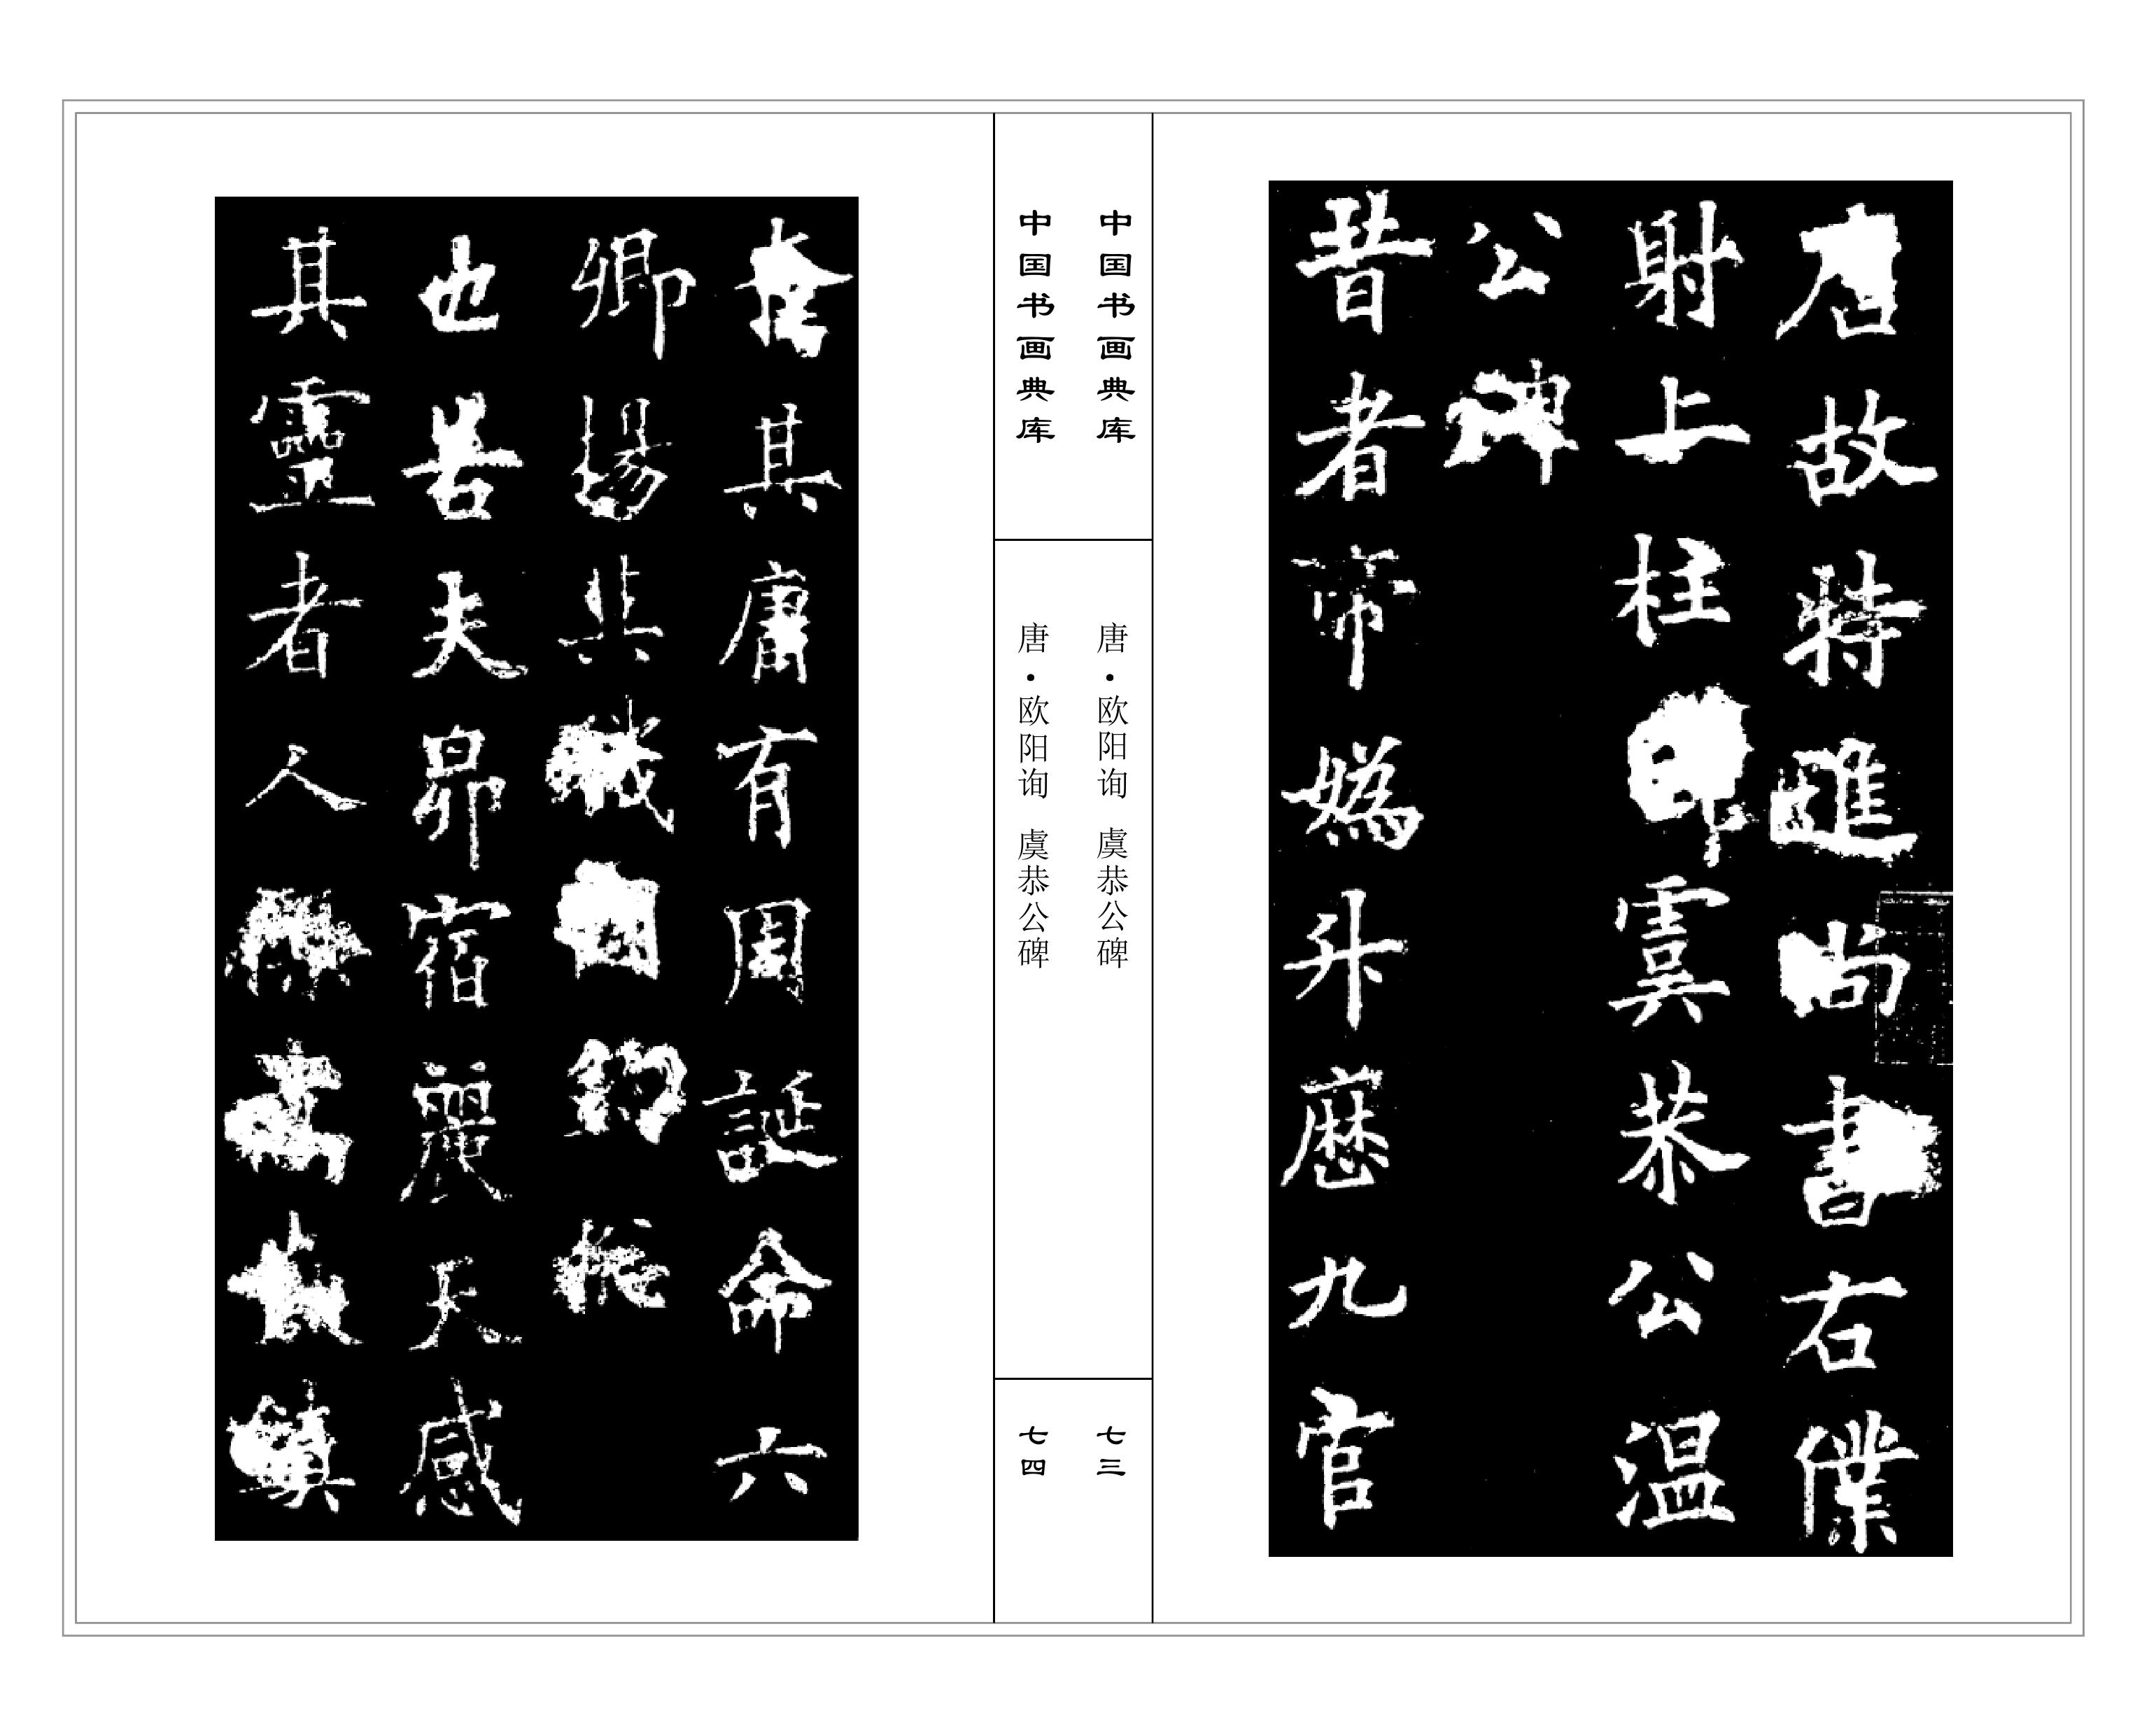 唐故特進尚書右僕
射上柱國虞恭公溫
公碑
昔者帝媯升歷九官
中国书画典库
唐·欧阳询 虞恭公碑
七三
中国书画典库
唐·欧阳询 虞恭公碑
七四
奮其庸有周誕命六
卿揚其職
也若夫昴宿麗天感
其靈者人